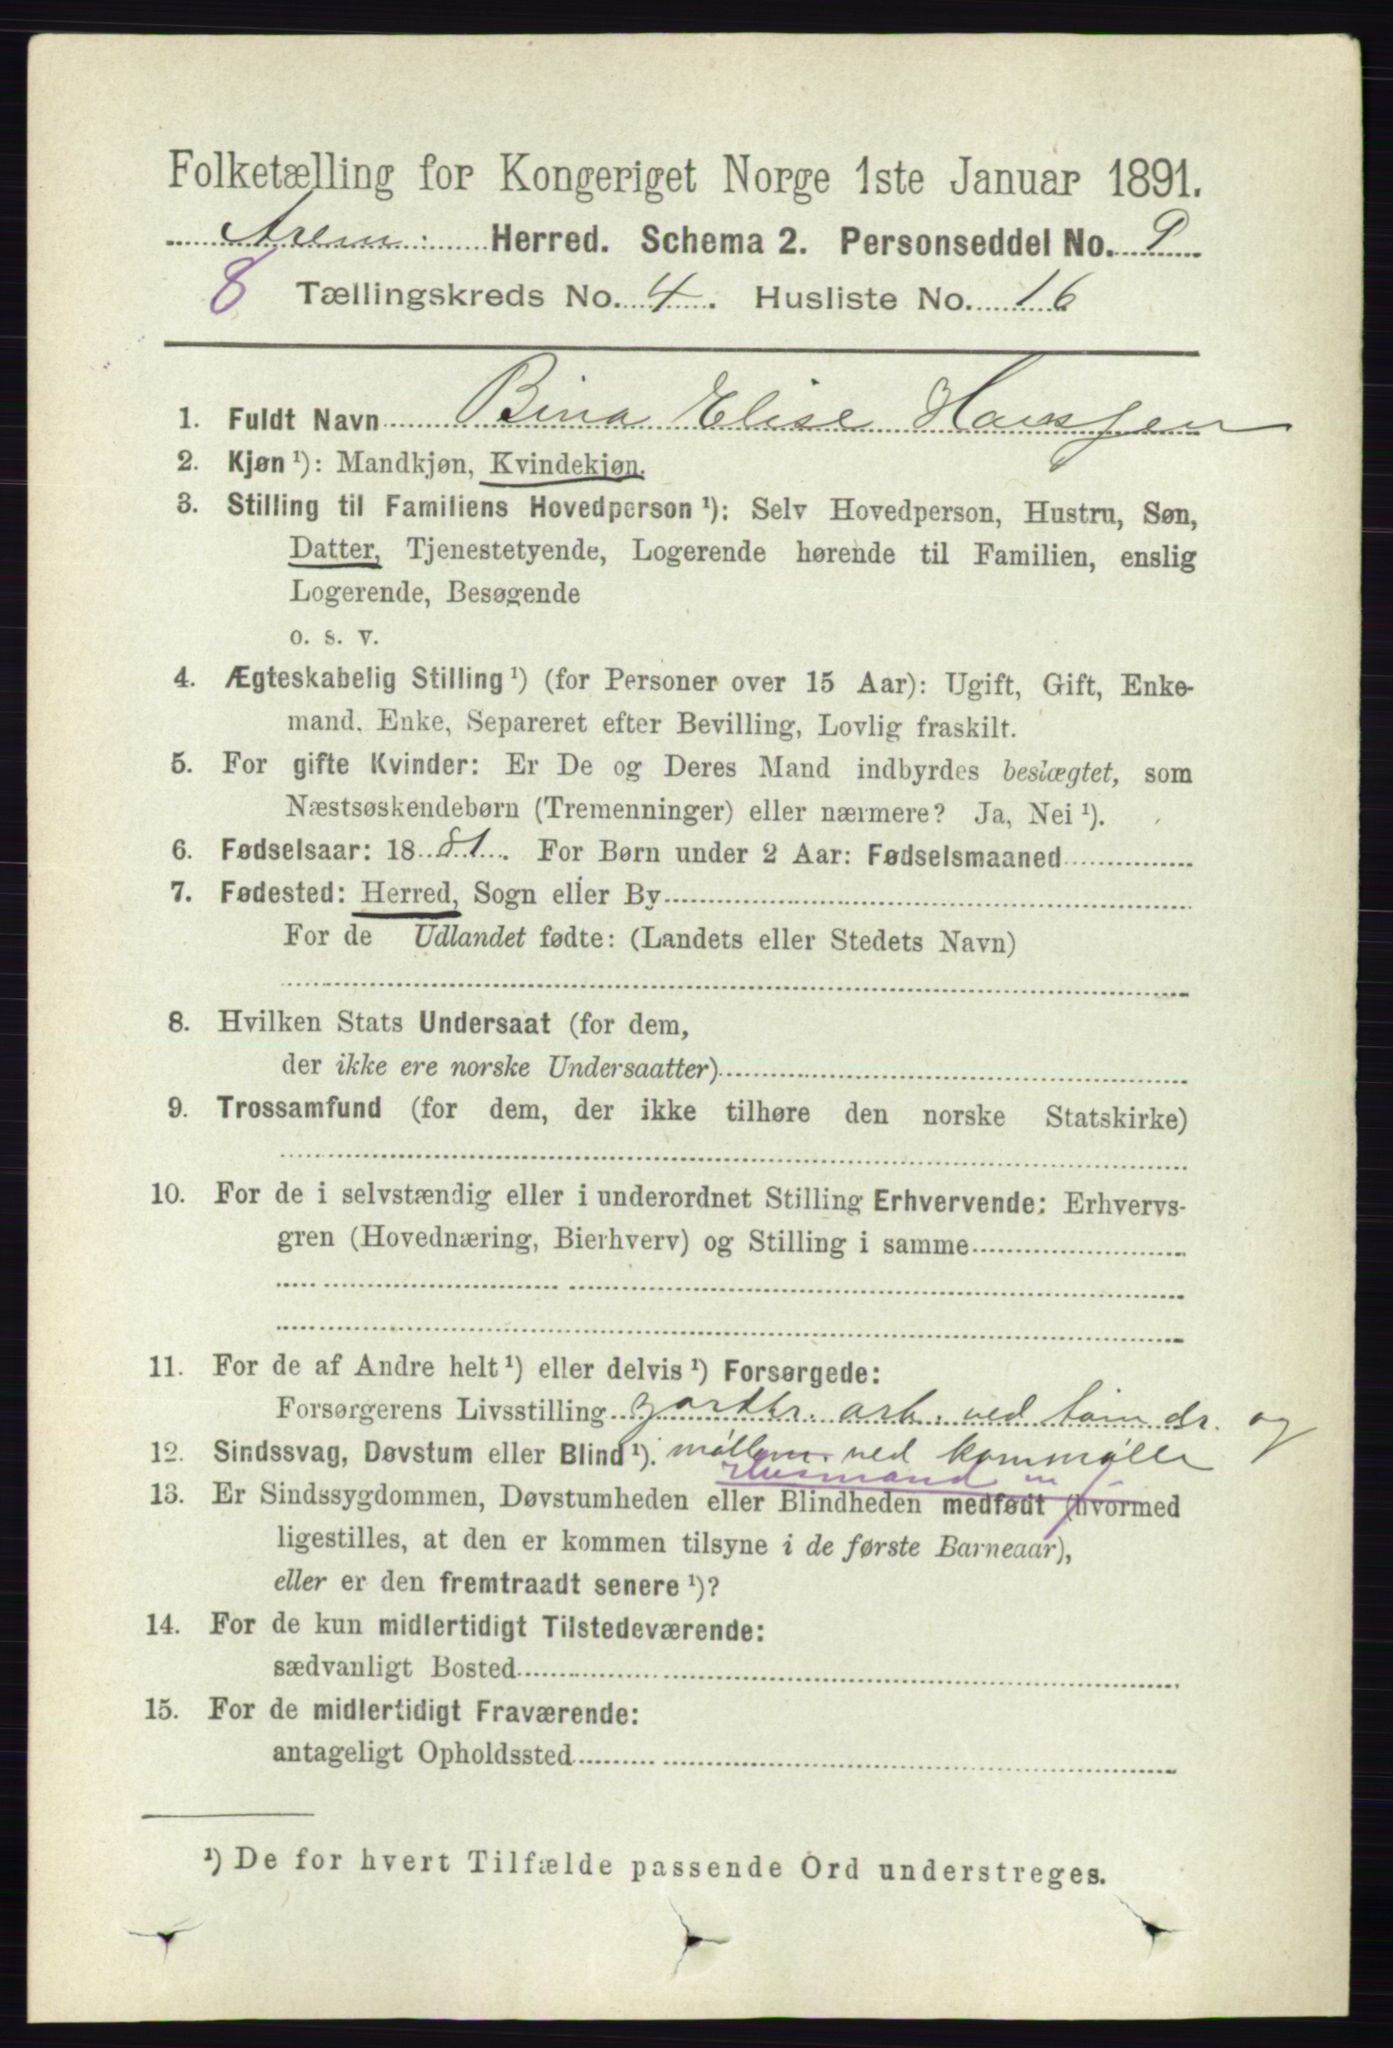 Folketælling for Kongeriget Norge 1ste Januar 1891.
Arem Herred. Schema 2. Personseddel No. 9
8 Tællingskreds No. 4. Husliste No. 16
1. Fuldt Navn Bina Elise Hansen
2. Kjøn¹): Mandkjøn, Kvindekjøn.
3. Stilling til Familiens Hovedperson¹): Selv Hovedperson, Hustru, Søn,
Datter, Tjenestetyende, Logerende hørende til Familien, enslig
Logerende, Besøgende
o. s. v.
4. Ægteskabelig Stilling¹) (for Personer over 15 Aar): Ugift, Gift, Enke-
mand, Enke, Separeret efter Bevilling, Lovlig fraskilt.
5. For gifte Kvinder: Er De og Deres Mand indbyrdes beslægtet, som
Næstsøskendebørn (Tremenninger) eller nærmere? Ja, Nei¹).
6. Fødselsaar: 1881. For Børn under 2 Aar: Fødselsmaaned
7. Fødested: Herred, Sogn eller By
For de Udlandet fødte: (Landets eller Stedets Navn)
8. Hvilken Stats Undersaat (for dem,
der ikke ere norske Undersaatter)
9. Trossamfund (for dem, der ikke tilhøre den norske Statskirke)
10. For de i selvstændig eller i underordnet Stilling Erhvervende: Erhvervs-
gren (Hovednæring, Bierhverv) og Stilling i samme
11. For de af Andre helt¹) eller delvis¹) Forsørgede:
Forsørgerens Livsstilling arb. ved dr. og
12. Sindssvag, Døvstum eller Blind¹). ved kornmølle
Husmand m/
13. Er Sindssygdommen, Døvstumheden eller Blindheden medfødt (hvormed
ligestilles, at den er kommen tilsyne i de første Barneaar),
eller er den fremtraadt senere¹)?
14. For de kun midlertidigt Tilstedeværende:
sædvanligt Bosted
15. For de midlertidigt Fraværende:
antageligt Opholdssted
¹) De for hvert Tilfælde passende Ord understreges.